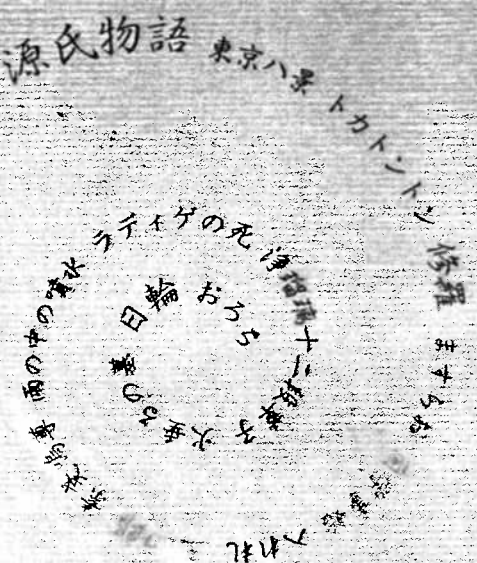 源氏物語
東京八景
トカトントン
修羅
ますらを
入れ札
雨の中の噴水
ラディゲの死
浄瑠璃十二段草子
火垂るの墓
日輪
おろち